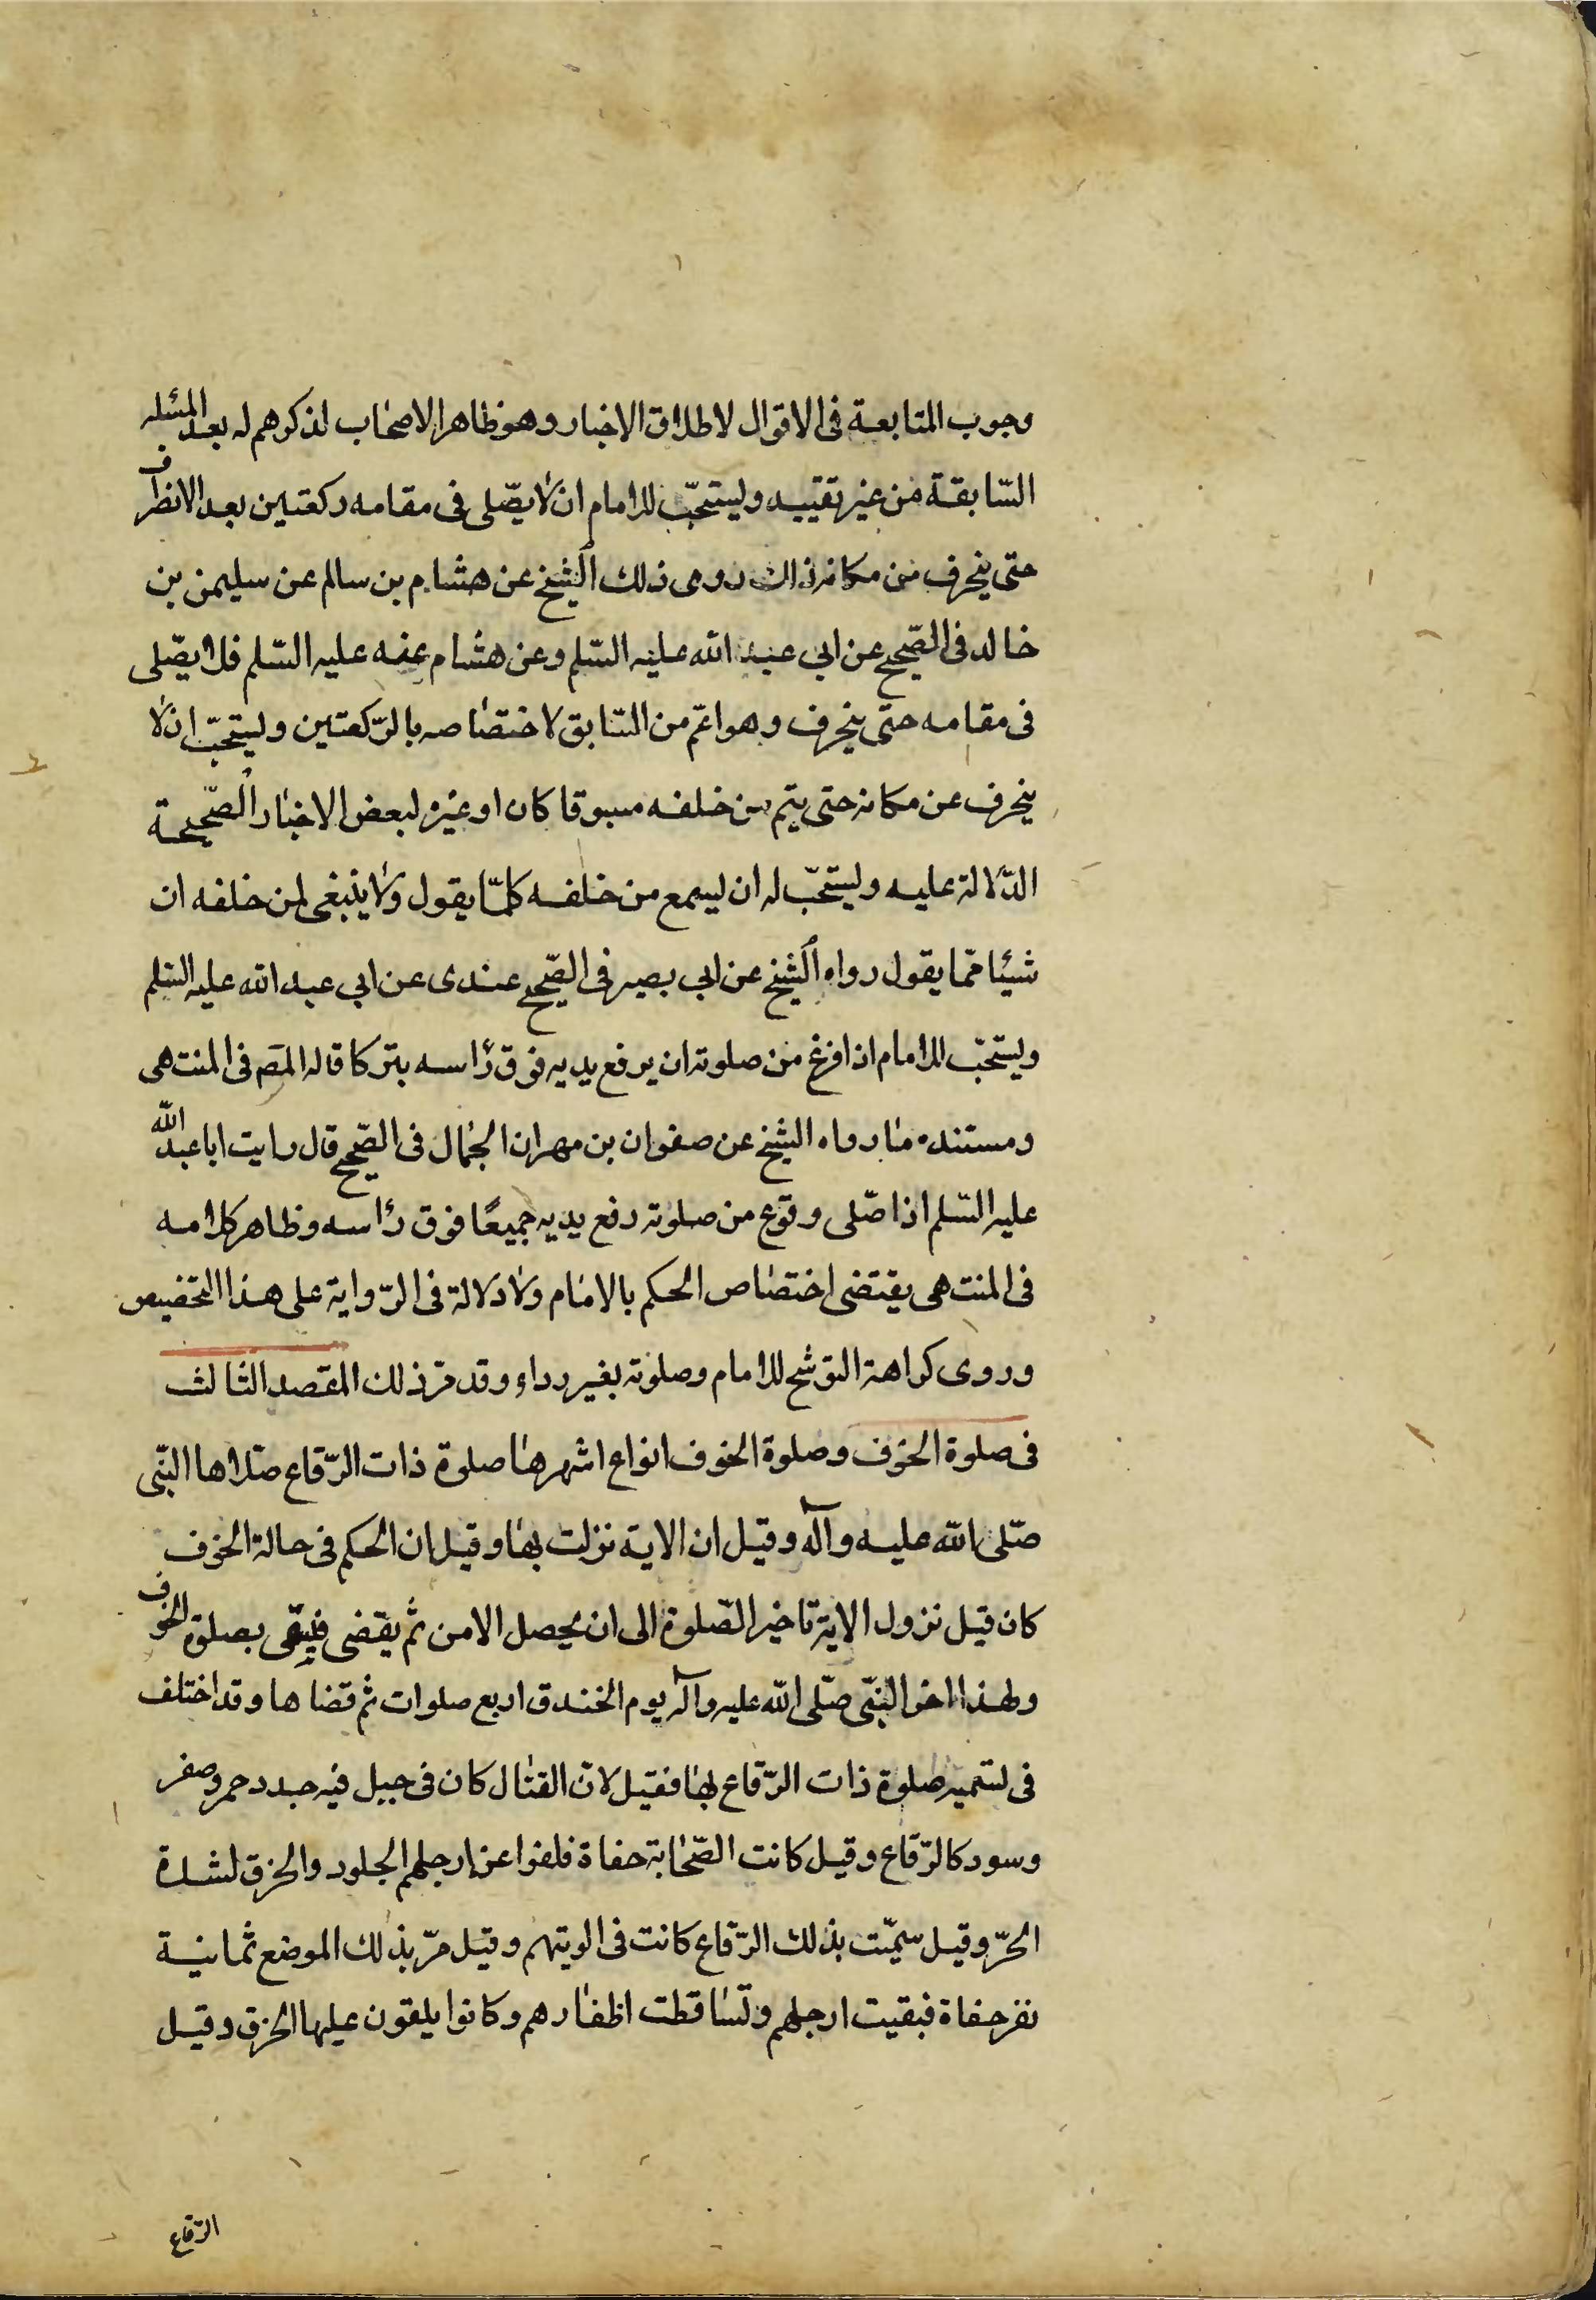 وجوب المتابعة فى الاقوال لاطلاق الاخبار وهو ظاهر الاصحاب لذكرهم له بعد المسئله
السّابقة من غير تقييد ويستحبّ للامام ان لا يصّلى فى مقامه ركعتين بعد الانصراف
حتى ينحرف من مكانه ذلك روى ذلك الشيخ عن هشام بن سالم عن سليمن بن
خالد فى الصّحيح عن ابى عبد الله عليه السّلم وعن هشام عنه عليه السّلم فلا يصّلى
فى مقامه حتّى ينحرف وهو اعّم من السّابق لاختصاصه بالرّكعتين ويستحبّ ان لا
ينحرف عن مكانه حتى يتم من خلفه مسبوقا كان او غيره لبعض الاخبار الصّحيحة
الدّالة عليه ويستحبّ له ان يسمع من خلفه كلمّا يقول ولا ينبغى لمن خلفه ان
شيئا ممّا يقول رواه الشيخ عن ابى بصير فى الصّحيح عندى عن ابى عبد الله عليه السّلم
ويستحّب للامام اذا فرغ من صلوته ان يرفع يديه فوق رأسه بتركا قاله المص فى المنتهى
ومستنده ما رواه الشيخ عن صفوان بن مهران الجمال فى الصّحيح قال رايت ابا عبد الله
عليه السّلم اذا صّلى وفوع من صلوته رفع يديه جميعًا فوق رأسه وظاهر كلامه
فى المنتهى يقتضى اختصاص الحكم بالامام ولا دلالة فى الرّواية على هذا التخصيص
وروى كراهة التوشح للامام وصلوته بغير رداء وقد مّر ذلك المقصد الثالث
فى صلوة الخوف وصلوة الخوف انواع اشهرها صلوة ذات الرّقاع صّلاها النّبى
صّلى الله عليه وآله وقيل ان الاية نزلت بها وقيل ان الحكم فى حالة الخوف
كان قبل نزول الاية تاخير الصّلوة الى ان يحصل الامن ثم يقضى بصلوة الخوف
ولهذا اخر النّبى صّلى الله عليه وآله يوم الخندق اربع صلوات ثم قضاها وقد اختلف
فى تسميه صلوة ذات الرّقاع بها فقيل لانّ القتال كان فى جبل فيه جدد حمر وصفر
وسود كالرّقاع وقيل كانت الصّحابة حفاة فلفوا عن ارجلهم الجلود والخرق لشدة
الحرّ وقيل سمّيت بذلك الرّقاع كانت فى الويتهم وقيل مرّ بذلك الموضع ثمانية
نفر حفاة فبقيت ارجلهم وتساقطت اظفارهم وكانوا يلقون عليها الخرق وقيل
الرّقاع